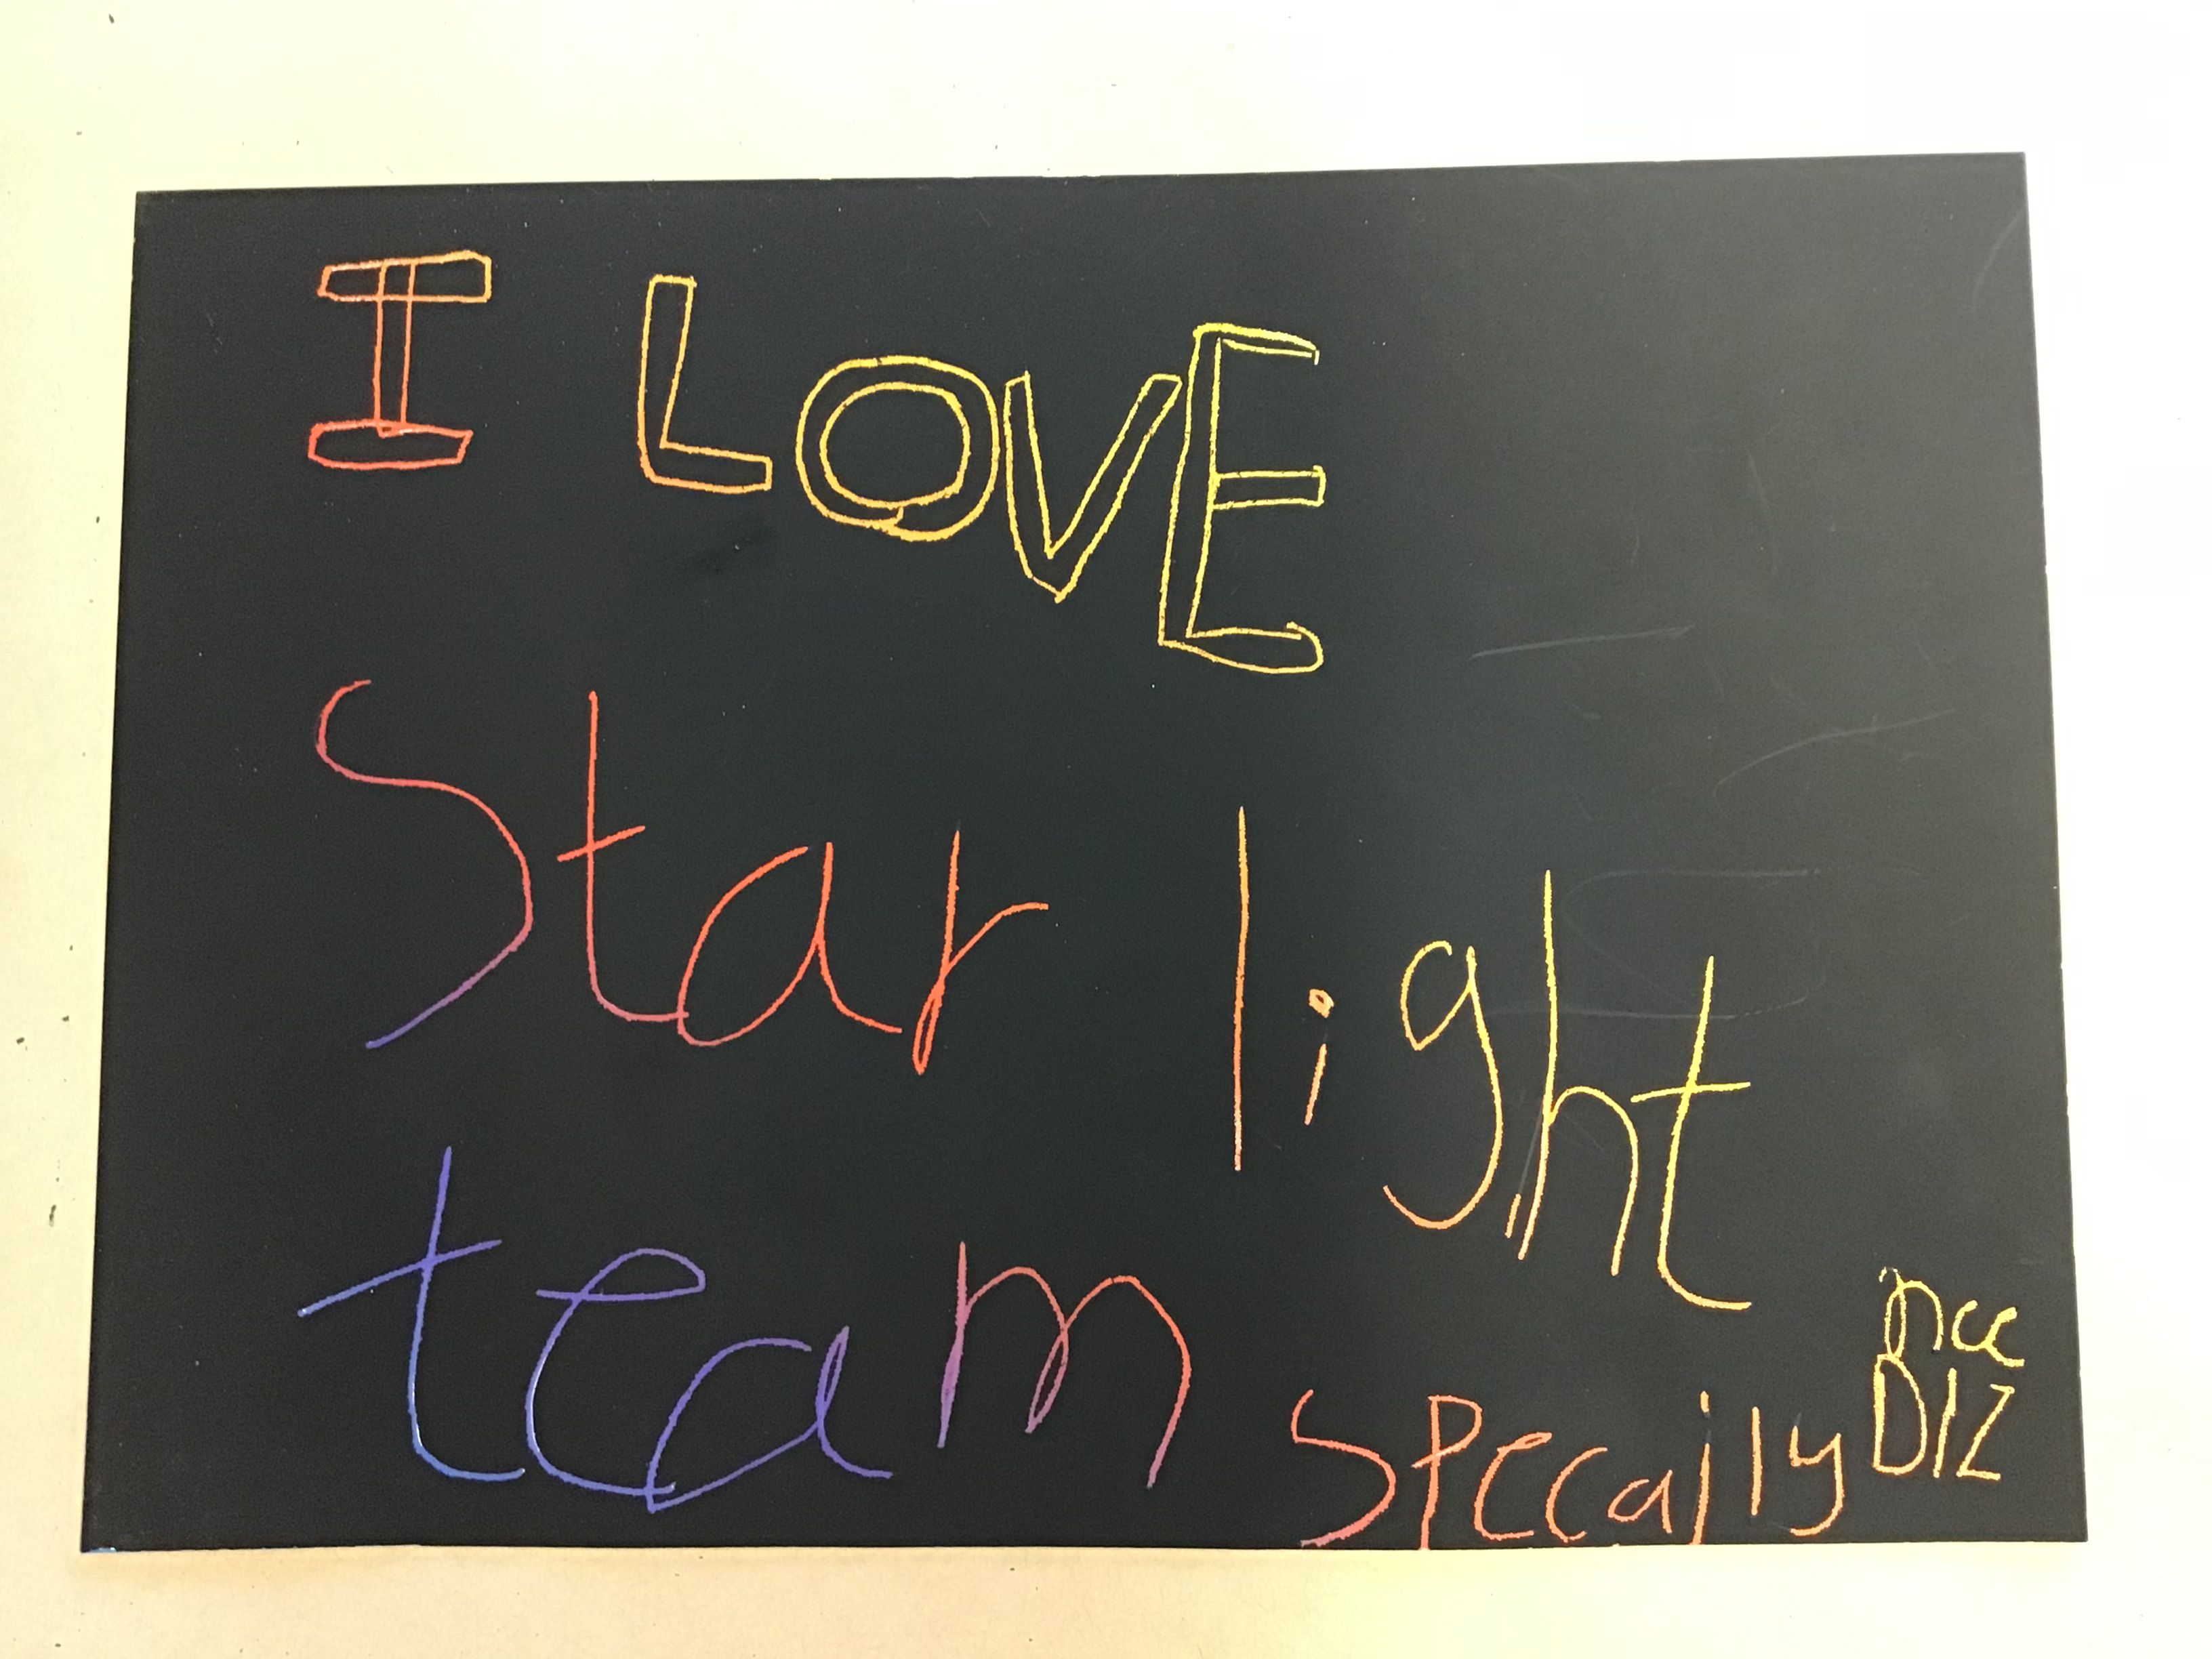 I LOVE
Star light
team
specaily
DIZ